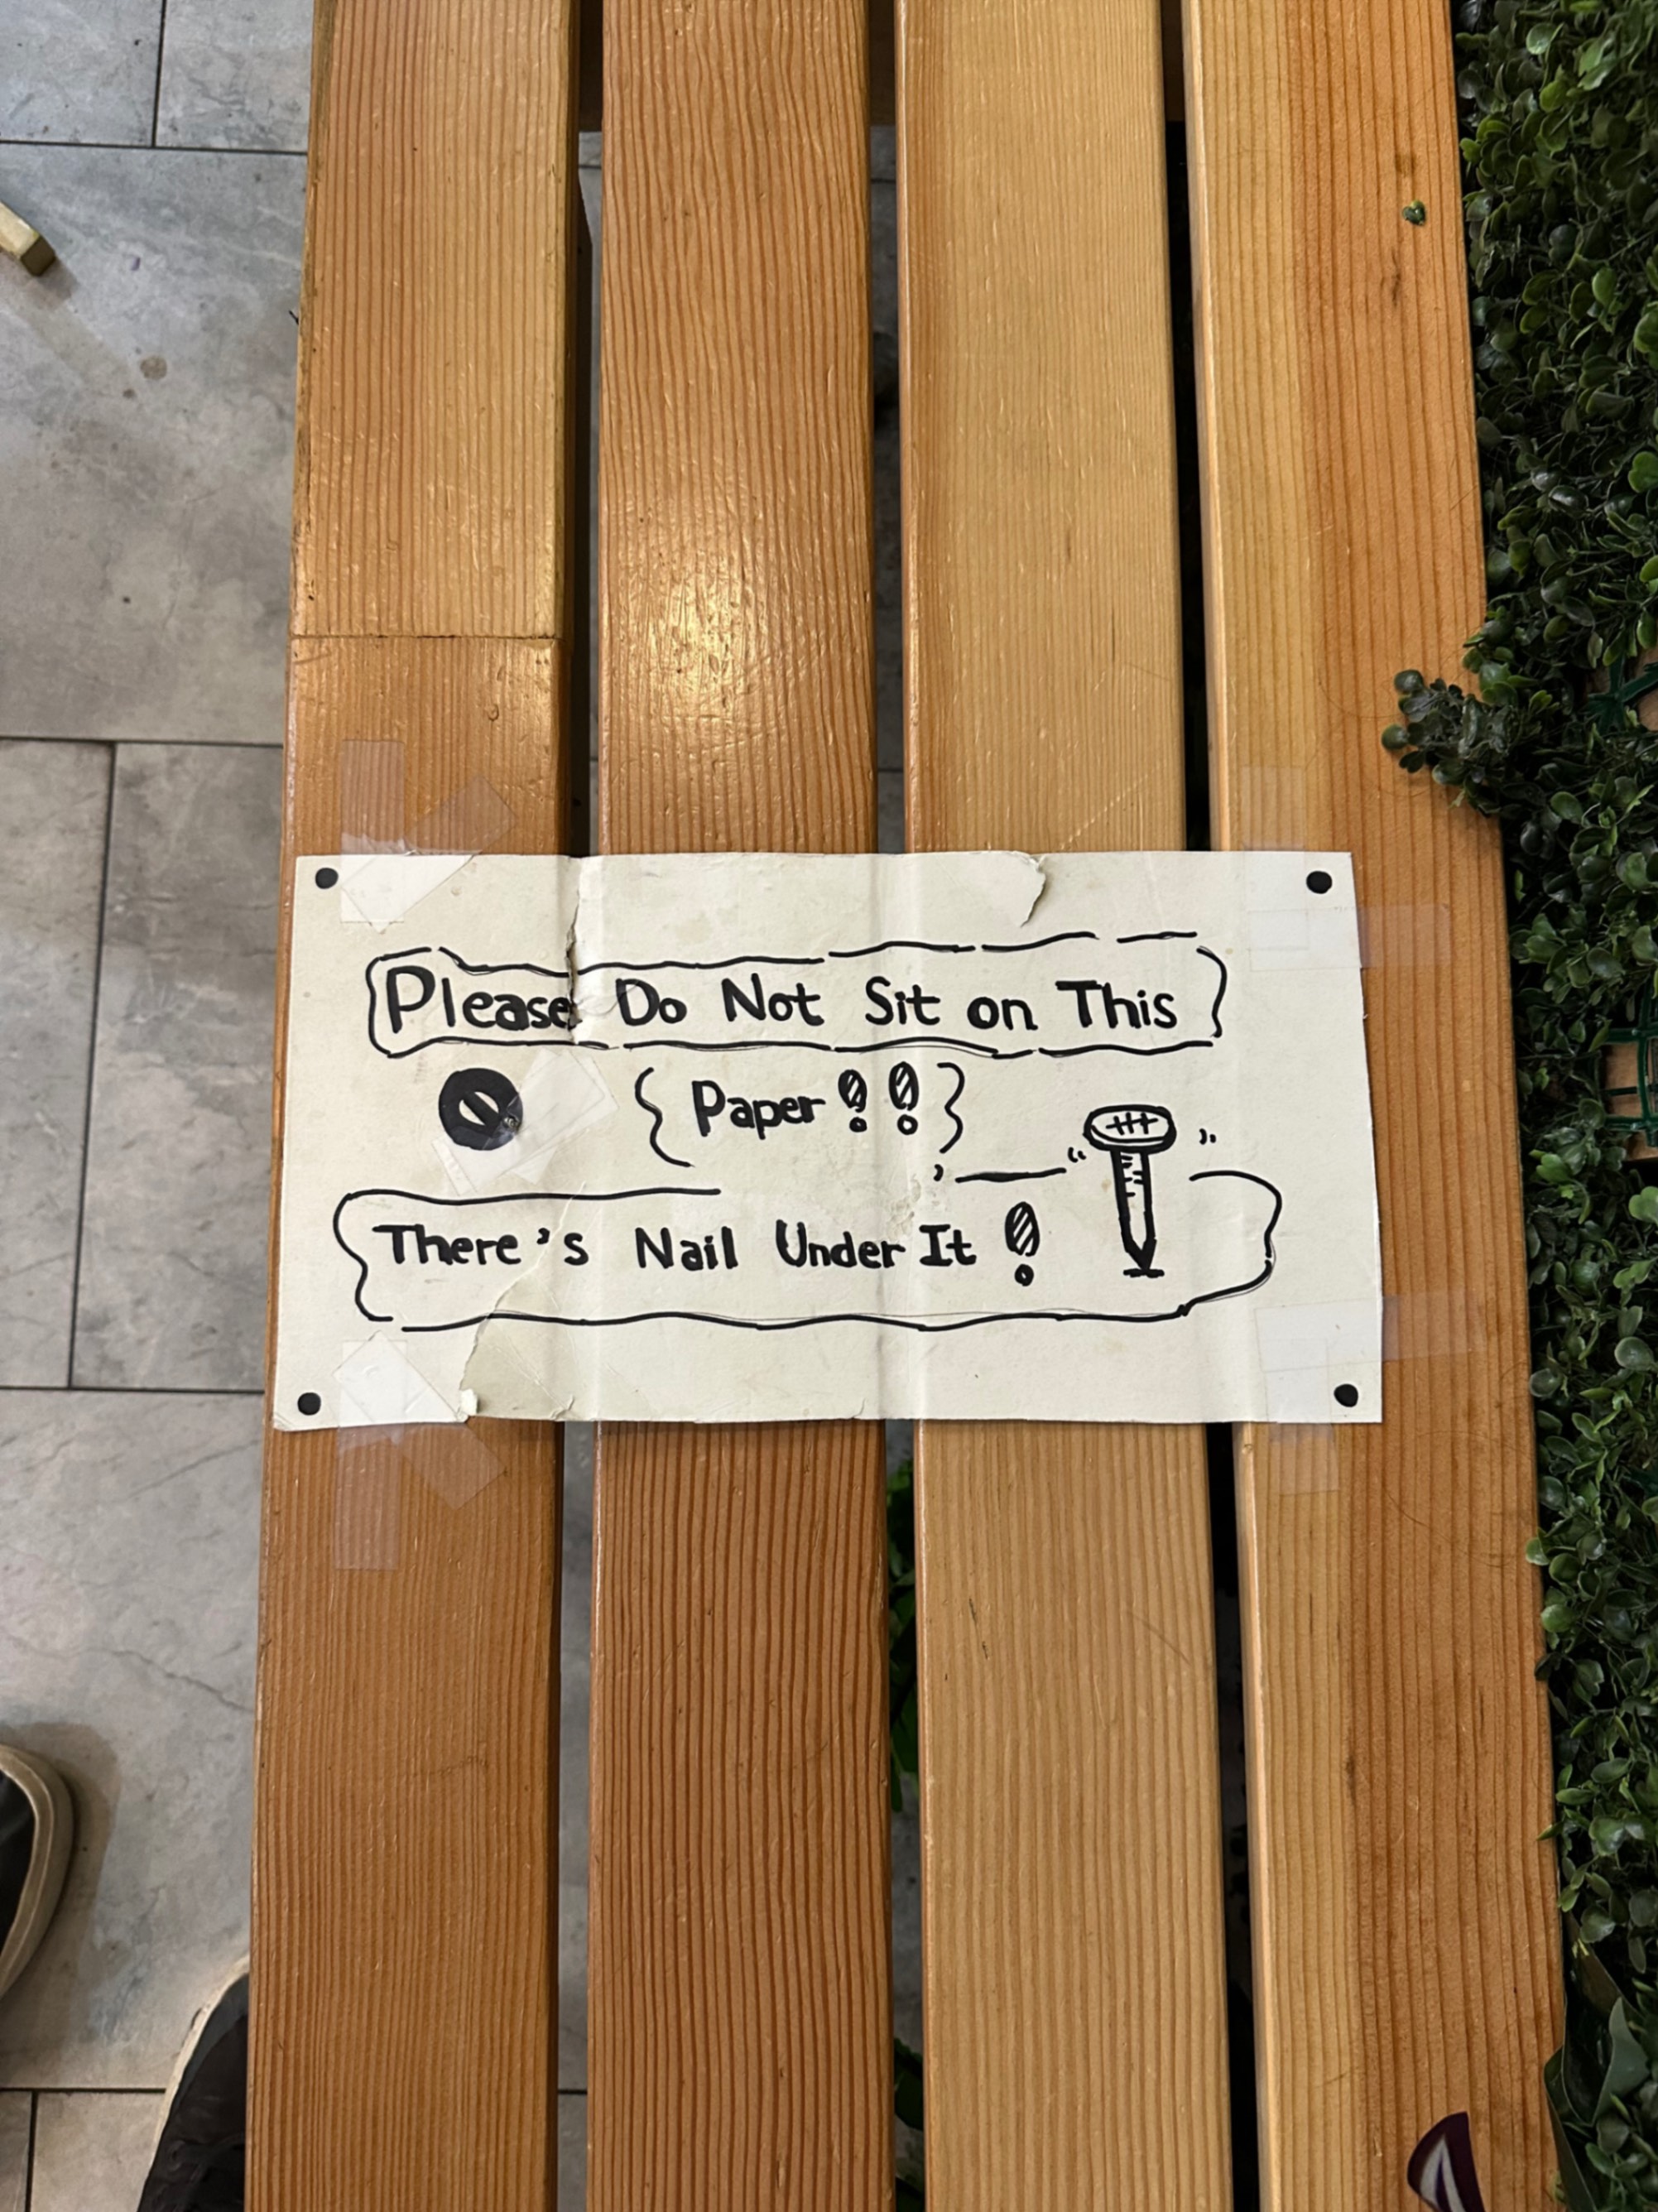 Please Do Not Sit on This
Paper!!
There's Nail Under It!